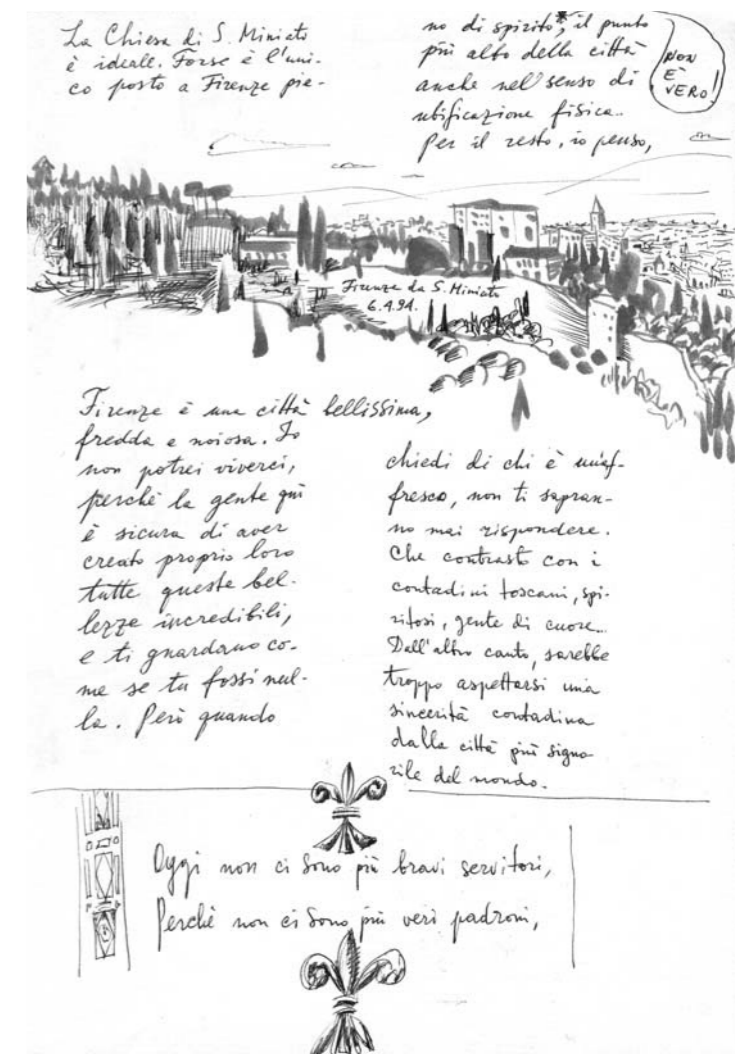 La Chiesa di S. Miniato
è ideale. Forse è l'uni-
co posto a Firenze pie-
no di spirito*, il punto
più alto della città
anche nel senso di
ubificazione fisica..
Per il resto, io penso,
NON
È
VERO!
Firenze da S. Miniato
6.4.94.
Firenze è una città bellissima,
fredda e noiosa. Io
non potrei viverci,
perchè la gente qui
è sicura di aver
creato proprio loro
tutte queste bel-
lezze incredibili,
e ti guardano co-
me se tu fossi nul-
la. Però quando
chiedi di chi è un'af-
fresco, non ti sapran-
no mai rispondere.
Che contrasto con i
contadini toscani, spi-
ritosi, gente di cuore...
Dall'altro canto, sarebbe
troppo aspettarsi una
sincerità contadina
dalla città più signo-
rile del mondo.
Oggi non ci sono più bravi servitori,
Perchè non ci sono più veri padroni,